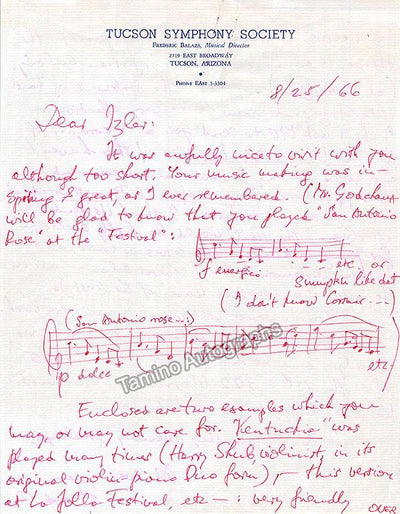 TUCSON SYMPHONY SOCIETY
FREDERIC BALAZS, Musical Director
2719 EAST BROADWAY
TUCSON, ARIZONA
PHONE EAST 5-5304
8/25/66
Dear Izler:
It was awfully nice to visit with you
although too short. Your music making was in-
spiring & great, as I ever remembered. (Mr. Godchaux
will be glad to know that you played "San Antonio
Rose" at the "Festival":
f energico etc or
sumpkin like dat
(I don't know Corsair...)
(San Antonio rose...:)
p dolce etc)
Tamino Autographs
Enclosed are two examples which you
may or may not care for. "Kentuckia" was
played many times (Harry Shub, violinist, in its
original violin-piano Duo form), – this version
at La Jolla Festival, etc – : very friendly
OVER